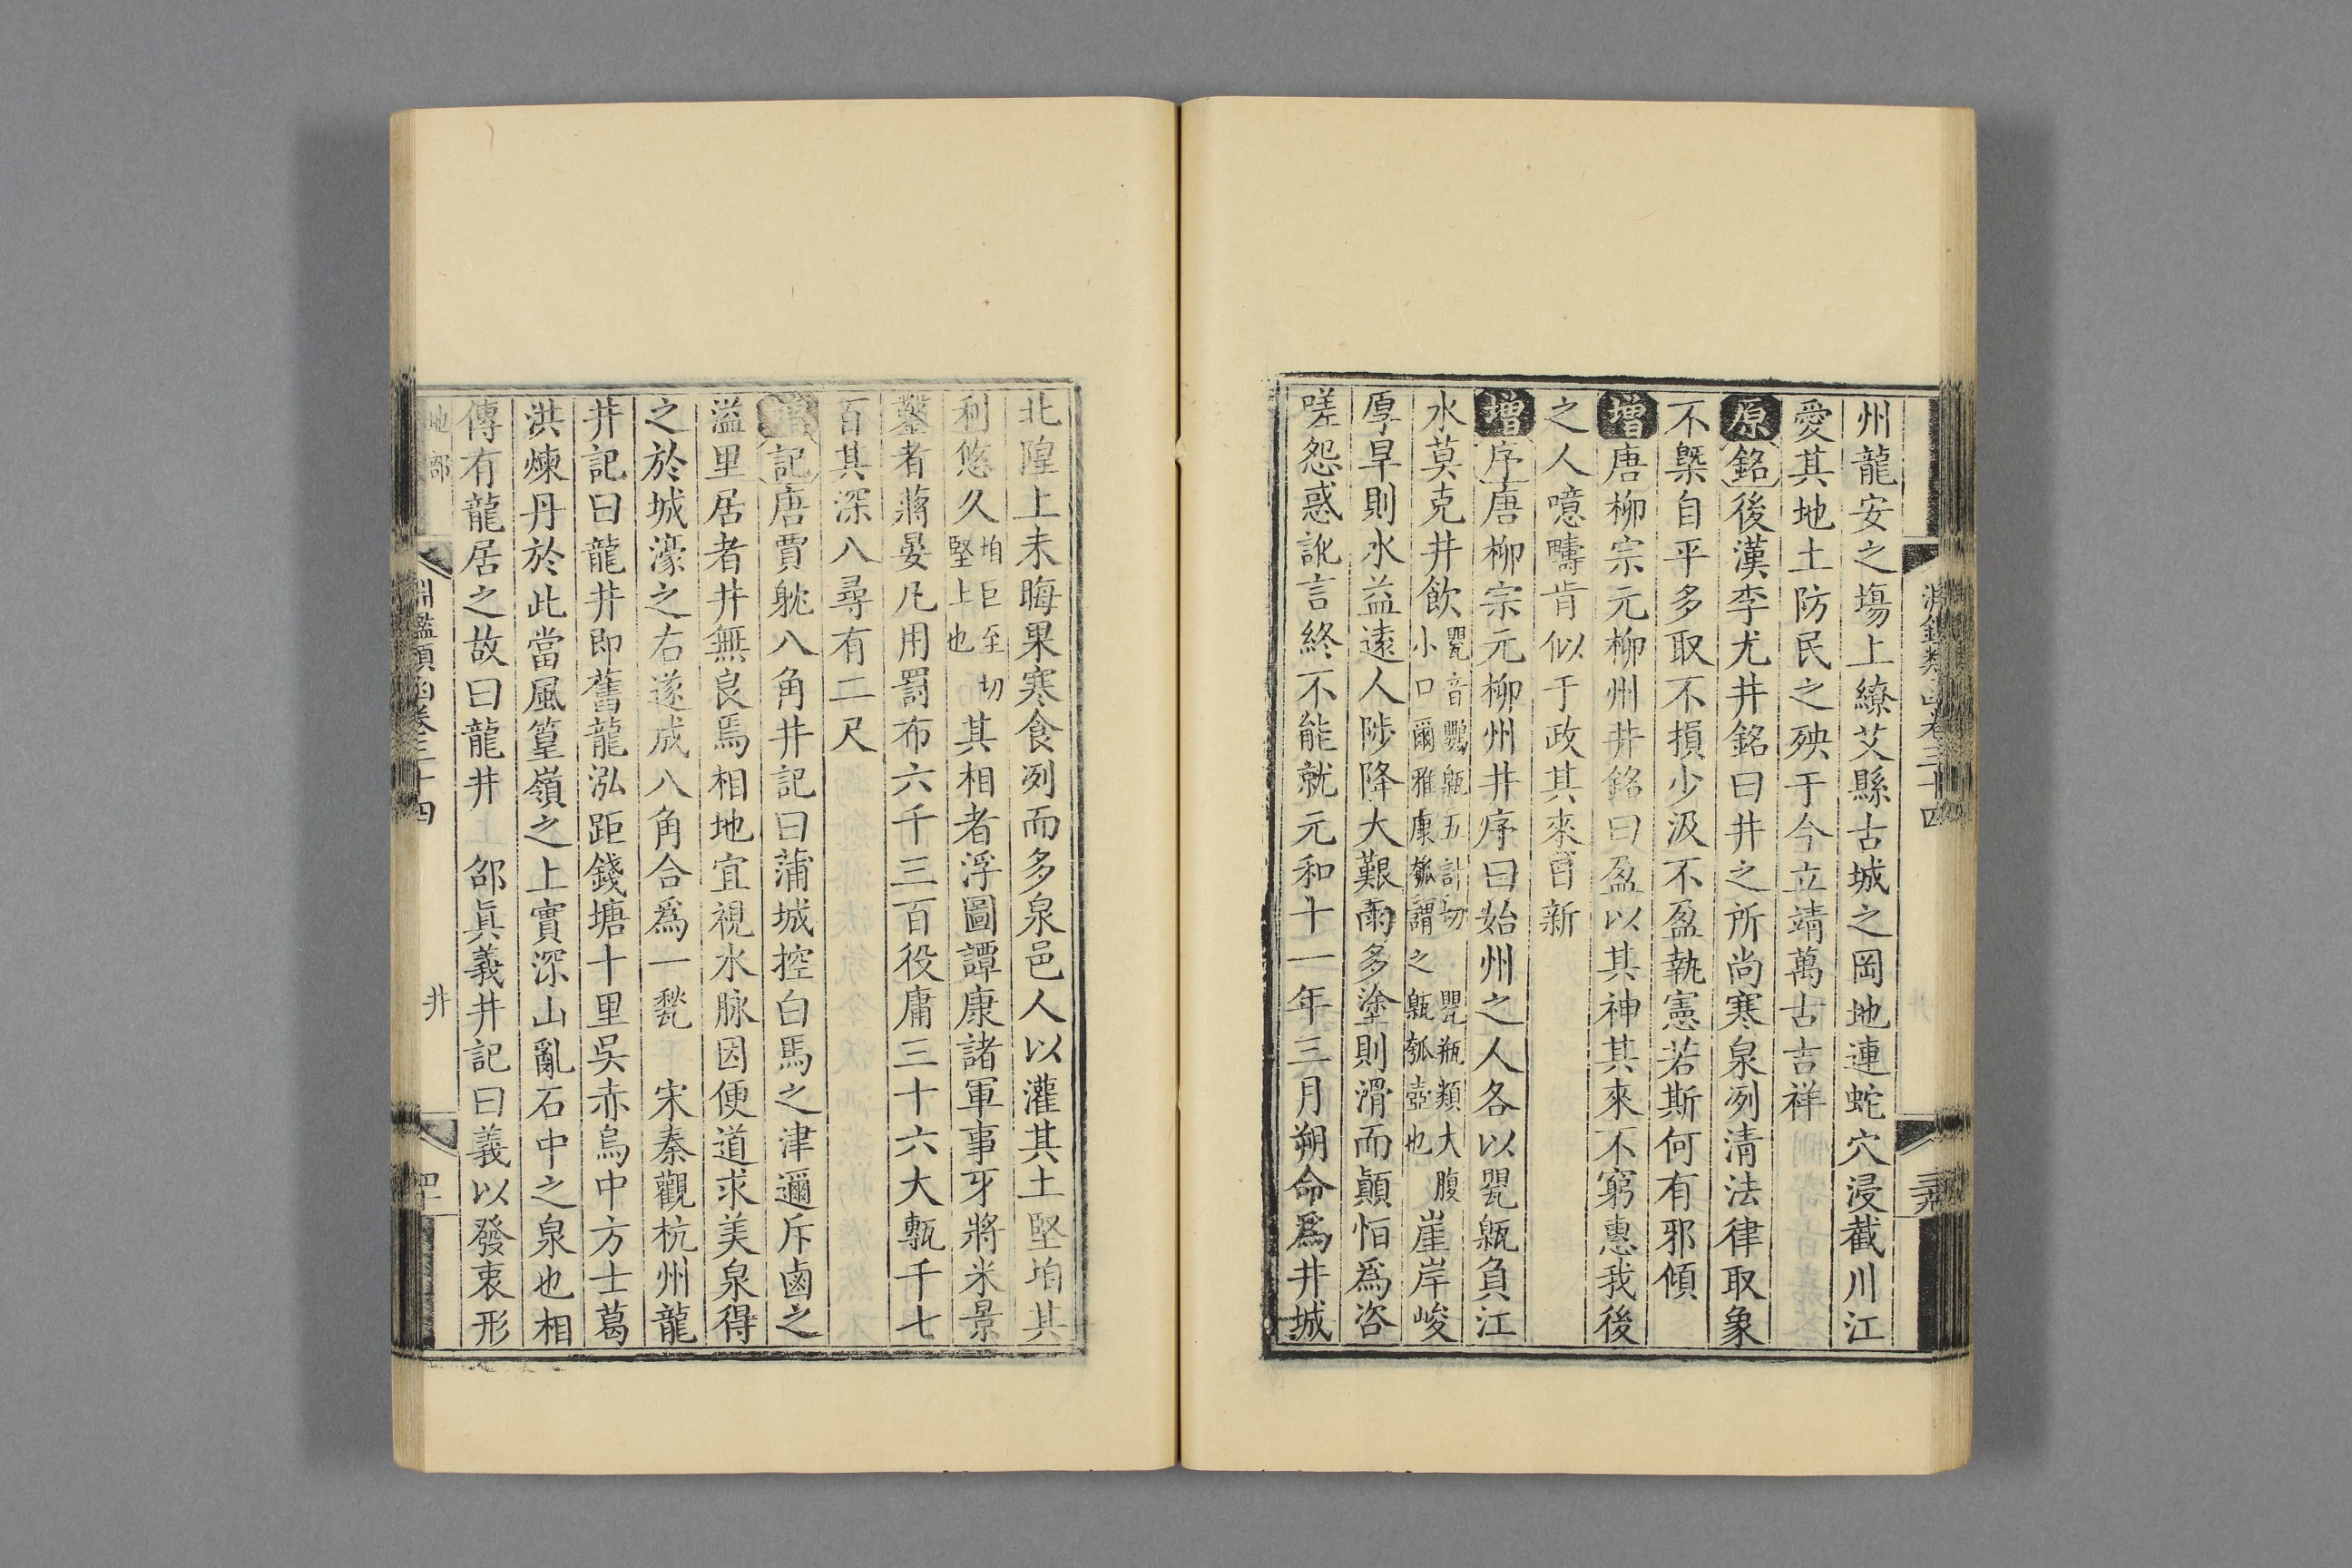 州龍安之塲上繚艾縣古城之岡地連蛇穴浸截川江
愛其地土防民之殃于今立靖萬古吉祥
原銘後漢李尤井銘曰井之所尚寒泉冽清法律取象
不槩自平多取不損少汲不盈執憲若斯何有邪傾
增唐柳宗元柳州井銘曰盈以其神其來不窮惠我後
之人噫疇肯似于政其來日新
增序唐柳宗元柳州井序曰始州之人各以甖瓾負江
水莫克井飲甖音鸚瓾五計切 甖瓶類大腹小口爾雅康瓠謂之瓾瓠壺也崖岸峻
厚旱則水益遠人陟降大艱雨多塗則滑而顚恒爲咨
嗟怨惑訛言終不能就元和十一年三月朔命爲井城
北隍上未晦果寒食冽而多泉邑人以灌其土堅垍其
利悠久垍巨至切堅土也其相者浮圖譚康諸軍事牙將米景
鑿者蔣晏凡用罰布六千三百役庸三十六大甎千七
百其深八尋有二尺
增記唐賈躭八角井記曰蒲城控白馬之津邇斥鹵之
溢里居者井無良焉相地宜視水脉因便道求美泉得
之於城濠之右遂成八角合爲一甃 宋秦觀杭州龍
井記曰龍井即舊龍泓距錢塘十里吳赤烏中方士葛
洪煉丹於此當風篁嶺之上實深山亂石中之泉也相
傳有龍居之故曰龍井 邵眞義井記曰義以發衷形
地部 淵鑑類函卷三十四 井